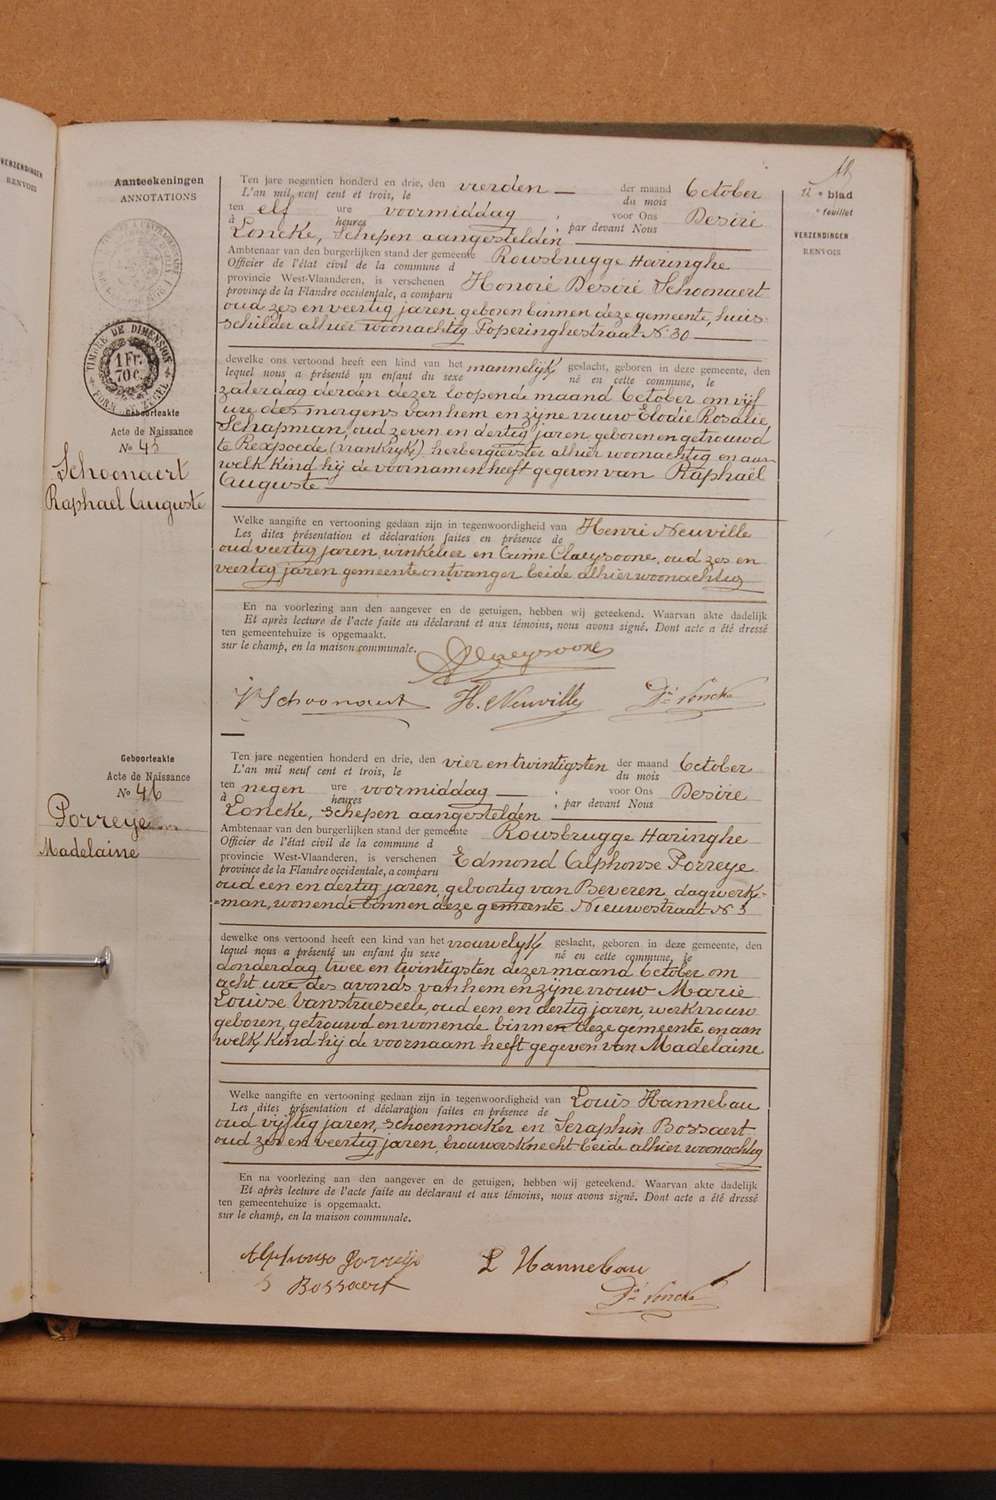 VERZENDINGEN
RENVOIS
Aanteekeningen
ANNOTATIONS
TIMBRE DE DIMENSION
1 Fr.
70 C.
Geboorteakte
Acte de Naissance
No 45
Schoonaert
Raphael Auguste
Ten jare negentien honderd en drie, den vierden — der maand October
L'an mil neuf cent et trois, le du mois
ten elf ure voormiddag , voor Ons Desiré
à heures par devant Nous
Loncke, Schepen aangestelden
Ambtenaar van den burgerlijken stand der gemeente Rousbrugge Haringhe
Officier de l'état civil de la commune d
provincie West-Vlaanderen, is verschenen Honoré Desiré Schoonaert
province de la Flandre occidentale, a comparu
oud zes en veertig jaren, geboren binnen deze gemeente, huis-
schilder alhier woonachtig Poperinghestraat No 30
dewelke ons vertoond heeft een kind van het mannelyk geslacht, geboren in deze gemeente, den
lequel nous a présenté un enfant du sexe né en cette commune, le
zaterdag derden dezer loopende maand October om vijf
ure des morgens van hem en zijne vrouw Elodie Rosalie
Schapman, oud zeven en dertig jaren, geboren en getrouwd
te Rexpoede (Vrankryk), herbergierster alhier woonachtig en aan
welk kind hij de voornamen heeft gegeven van Raphaël
Auguste
Welke aangifte en vertooning gedaan zijn in tegenwoordigheid van Henri Neuville
Les dites présentation et déclaration faites en présence de
oud veertig jaren, winkelier en Cumie Claeysoone, oud zes en
veertig jaren gemeenteontvanger beide alhier woonachtig
En na voorlezing aan den aangever en de getuigen, hebben wij geteekend. Waarvan akte dadelijk
Et après lecture de l'acte faite au déclarant et aux témoins, nous avons signé. Dont acte a été dressé
ten gemeentehuize is opgemaakt.
sur le champ, en la maison communale.
Claeysoone
Schoonaert H. Neuville Dé Loncke
11e blad
e feuillet
VERZENDINGEN
RENVOIS
Geboorteakte
Acte de Naissance
No 46
Porreye
Madelaine
Ten jare negentien honderd en drie, den vier en twintigsten der maand October
L'an mil neuf cent et trois, le du mois
ten negen ure voormiddag — , voor Ons Desiré
à heures , par devant Nous
Loncke, Schepen aangestelden
Ambtenaar van den burgerlijken stand der gemeente Rousbrugge Haringhe
Officier de l'état civil de la commune d
provincie West-Vlaanderen, is verschenen Edmond Alphonse Porreye
province de la Flandre occidentale, a comparu
oud een en dertig jaren, geboortig van Beveren, dagwerk-
man, wonende binnen deze gemeente Nieuwestraat No 3
dewelke ons vertoond heeft een kind van het vrouwelyk geslacht, geboren in deze gemeente, den
lequel nous a présenté un enfant du sexe né en cette commune, le
donderdag twee en twintigsten dezer maand October om
acht ure des avonds van hem en zijne vrouw Marie
Louise Vanstruseele, oud een en dertig jaren, werkvrouw
geboren, getrouwd en wonende binnen deze gemeente, en aan
welk kind hij de voornaam heeft gegeven van Madelaine
Welke aangifte en vertooning gedaan zijn in tegenwoordigheid van Louis Hannebau
Les dites présentation et déclaration faites en présence de
oud vijftig jaren, schoenmaker en Seraphin Bossaert
oud zes en veertig jaren, brouwersknecht beide alhier woonachtig
En na voorlezing aan den aangever en de getuigen, hebben wij geteekend. Waarvan akte dadelijk
Et après lecture de l'acte faite au déclarant et aux témoins, nous avons signé. Dont acte a été dressé
ten gemeentehuize is opgemaakt.
sur le champ, en la maison communale.
Alphonse Porreije L Hannebau
S Bossaert Dé Loncke